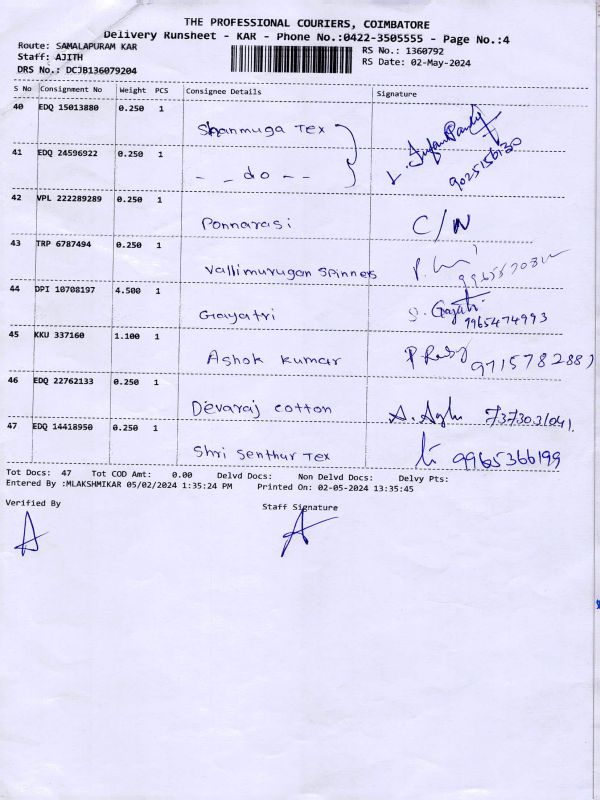 THE PROFESSIONAL COURIERS, COIMBATORE
Delivery Runsheet - KAR - Phone No.:0422-3505555 - Page No.:4
Route: SAMALAPURAM KAR RS No.: 1360792
Staff: AJITH RS Date: 02-May-2024
DRS No.: DCJB136079204
S No Consignment No Weight PCS Consignee Details Signature
40 EDQ 15013880 0.250 1 Shanmuga Tex
41 EDQ 24596922 0.250 1 - - do - - 9025156130
42 VPL 222289289 0.250 1 Ponnarasi C/N
43 TRP 6787494 0.250 1 Vallimurugan Spinners
44 DPI 10708197 4.500 1 Gayatri G. Gayatri 9965474993
45 KKU 337160 1.100 1 Ashok kumar 9715782887
46 EDQ 22762133 0.250 1 Devaraj cotton
47 EDQ 14418950 0.250 1 Shri Senthur Tex 9965366199
Tot Docs: 47 Tot COD Amt: 0.00 Delvd Docs: Non Delvd Docs: Delvy Pts:
Entered By :MLAKSHMIKAR 05/02/2024 1:35:24 PM Printed On: 02-05-2024 13:35:45
Verified By Staff Signature